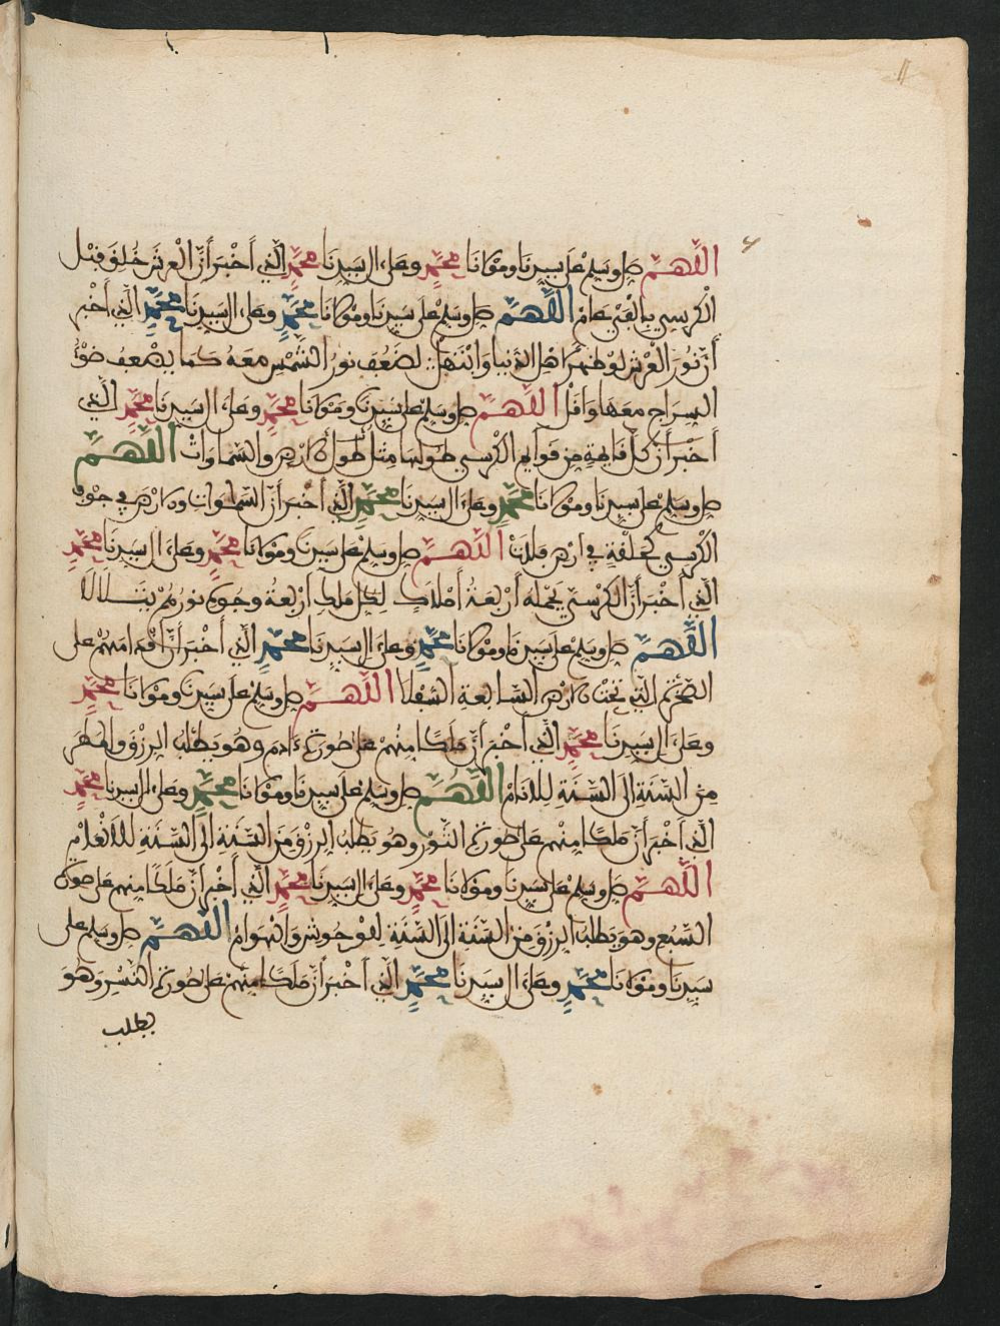 اللَّهُمَّ صل وسلم على سيدنا ومولانا محمد وعلى ءال سيدنا محمد الذي أَخْبَرَ أَنَّ الْعرش خُلِقَ قبل
الكرسي بألفي عام اللَّهُمَّ صل وسلم على سيدنا ومولانا محمد وعلى ءال سيدنا محمد الذي أخبر
أن نُورَ العَرْش لو ظهر لاهل الدنيا لضَعُف نورُ الشَّمْس معهُ كما يضعف ضَوْءُ
السراج معها وأقل اللَّهُمَّ صل وسلم على سيدنا ومولانا محمد وعلى ءال سيدنا محمد الذي
أَخْبَرَ أن كلَّ قايمة من قوايم الكرسي طولها مثل طول الارض والسماوات اللَّهُمَّ
صل وسلم على سيدنا ومولانا محمد وعلى ءال سيدنا محمد الذي أخبر أن السماوات والارض في جوف
الكرسي كحلقة في ارض فلاة اللَّهُمَّ صل وسلم على سيدنا ومولانا محمد وعلى ءال سيدنا محمد
الذي أَخْبَرَ أَنَّ الكرسي يحمله أربعة أَمْلاك لكل ملك أربعة وجوه نورهم يتلالا
اللَّهُمَّ صل وسلم على سيدنا ومولانا محمد وعلى ءال سيدنا محمد الذي أخبر أن أقدامهم على
الصخرة التي تحت الارض السابعة السفلا اللَّهُمَّ صل وسلم على سيدنا ومولانا محمد
وعلى ءال سيدنا محمد الذي أخبر أن ملكا منهم على صورة ءادم وهو يطلب الرزق والمطر
من السَّنَةِ إلى السَّنَةِ للانام اللَّهُمَّ صل وسلم على سيدنا ومولانا محمد وعلى ءال سيدنا محمد
الذي أَخْبَرَ أن ملكا منهم على صورة الثور وهو يطلب الرزق من السَّنَةِ إلى السَّنَةِ للانعام
اللَّهُمَّ صل وسلم على سيدنا ومولانا محمد وعلى ءال سيدنا محمد الذي أَخْبَرَ أن ملكا منهم على صورة
السبع وهو يطلب الرزق من السَّنَةِ إلى السَّنَةِ للوحوش والهوام اللَّهُمَّ صل وسلم على
سيدنا ومولانا محمد وعلى ءال سيدنا محمد الذي أَخْبَرَ أن ملكا منهم على صورة النسر وهو
يطلب